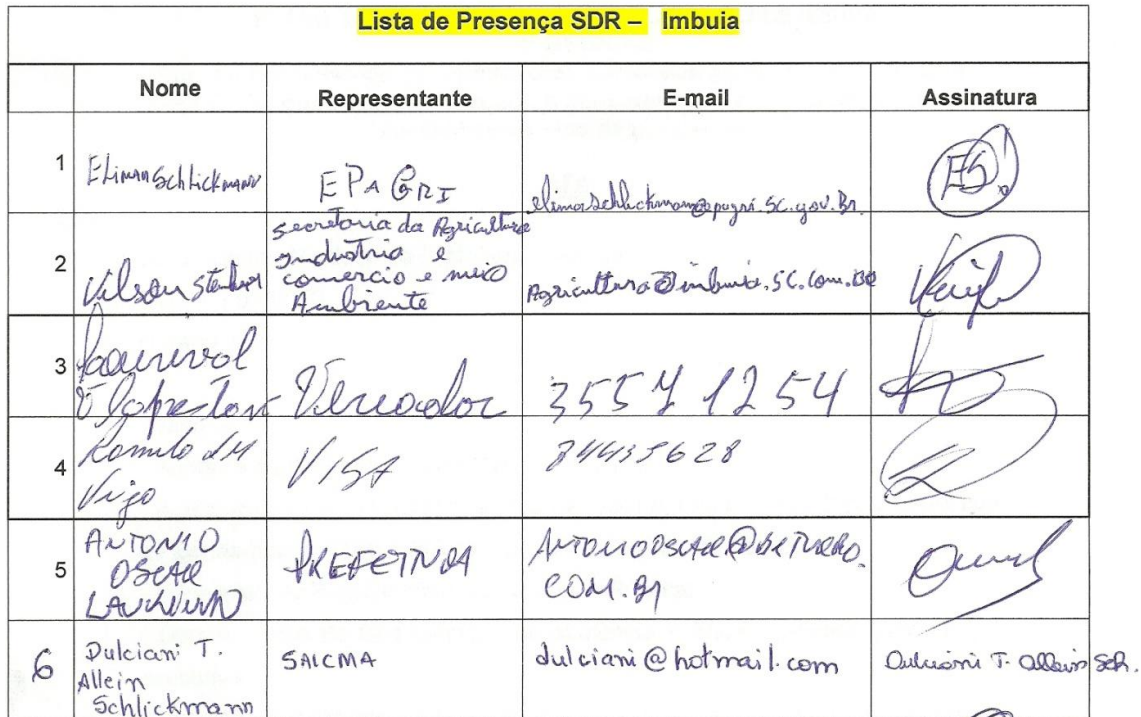 Lista de Presença SDR – Imbuia
Nome Representante E-mail Assinatura
1 Elimar Schlickmann EPAGRI elimarschlickmann@epagri.sc.gov.Br ES
2 Vilson
secretaria da Agricultura
industria e
comercio e meio
Ambiente
Agricultura@imbuia.SC.Com.BR
3
Vereador 3557 1254
4 Romulo
VISA 84435628
5 ANTONIO
OSCAR
PREFEITURA
COM.BR
6 Dulciani T.
Allein
Schlickmann
SAICMA dulciani@hotmail.com Dulciani T. Allein Sch.